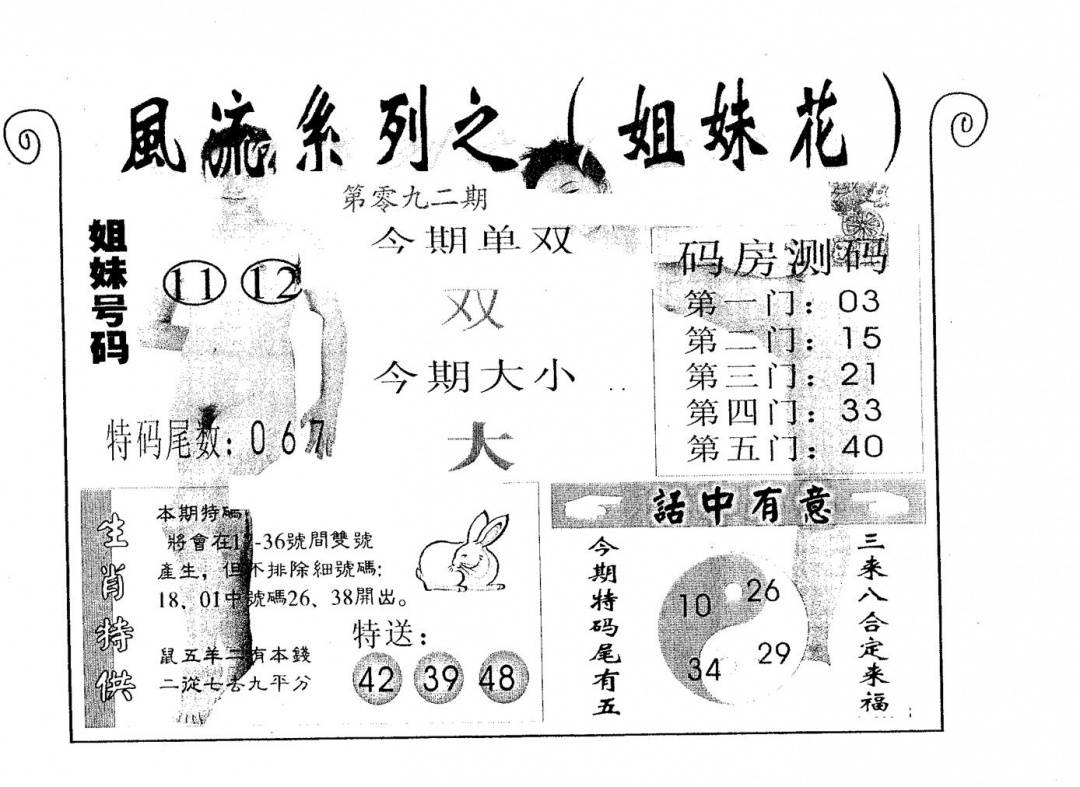 風流系列之（姐妹花）
第零九二期
姐妹号码
11 12
今期单双
双
今期大小
大
特码尾数：067
码房测码
第一门：03
第二门：15
第三门：21
第四门：33
第五门：40
生肖特供
本期特碼
將會在1-36號間雙號
產生，但不排除細號碼：
18、01中號碼26、38開出。
鼠五羊二有本錢
二從七去九平分
特送：
42 39 48
話中有意
今期特码尾有五
10 26
34 29
三来八合定来福